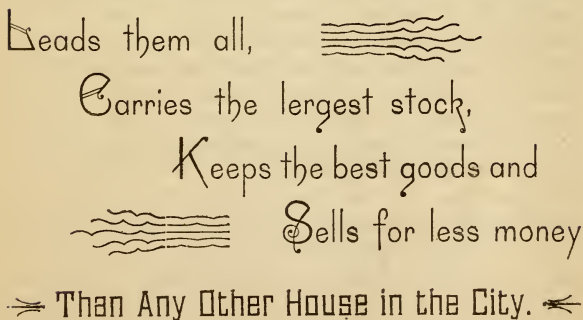 Leads them all,
Carries the lergest stock,
Keeps the best goods and
Sells for less money
Than Any Other House in the City.